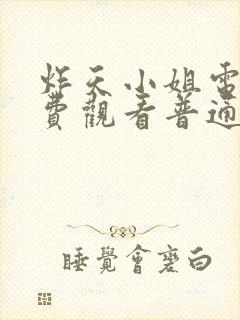 炸天小姐電
費觀看普通
睡覺會變白